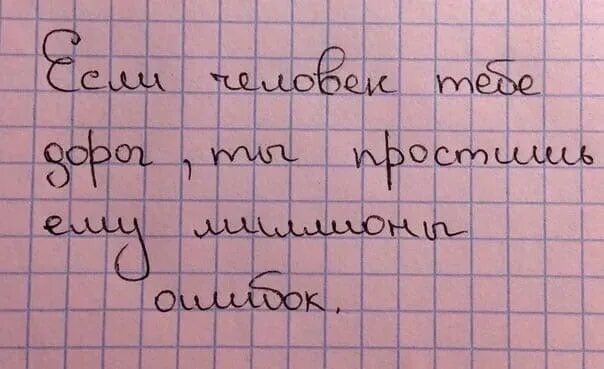 Если человек тебе
дорог, ты простишь
ему миллионы
ошибок.